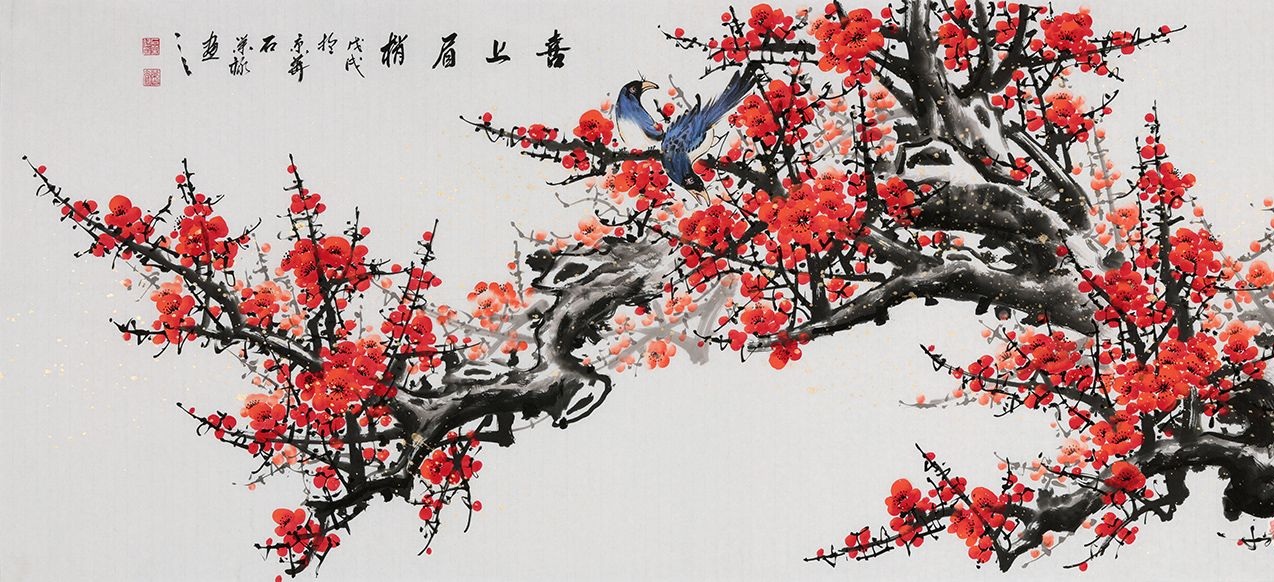 喜上眉梢
戊戌
於
京華
石
榮禄
画